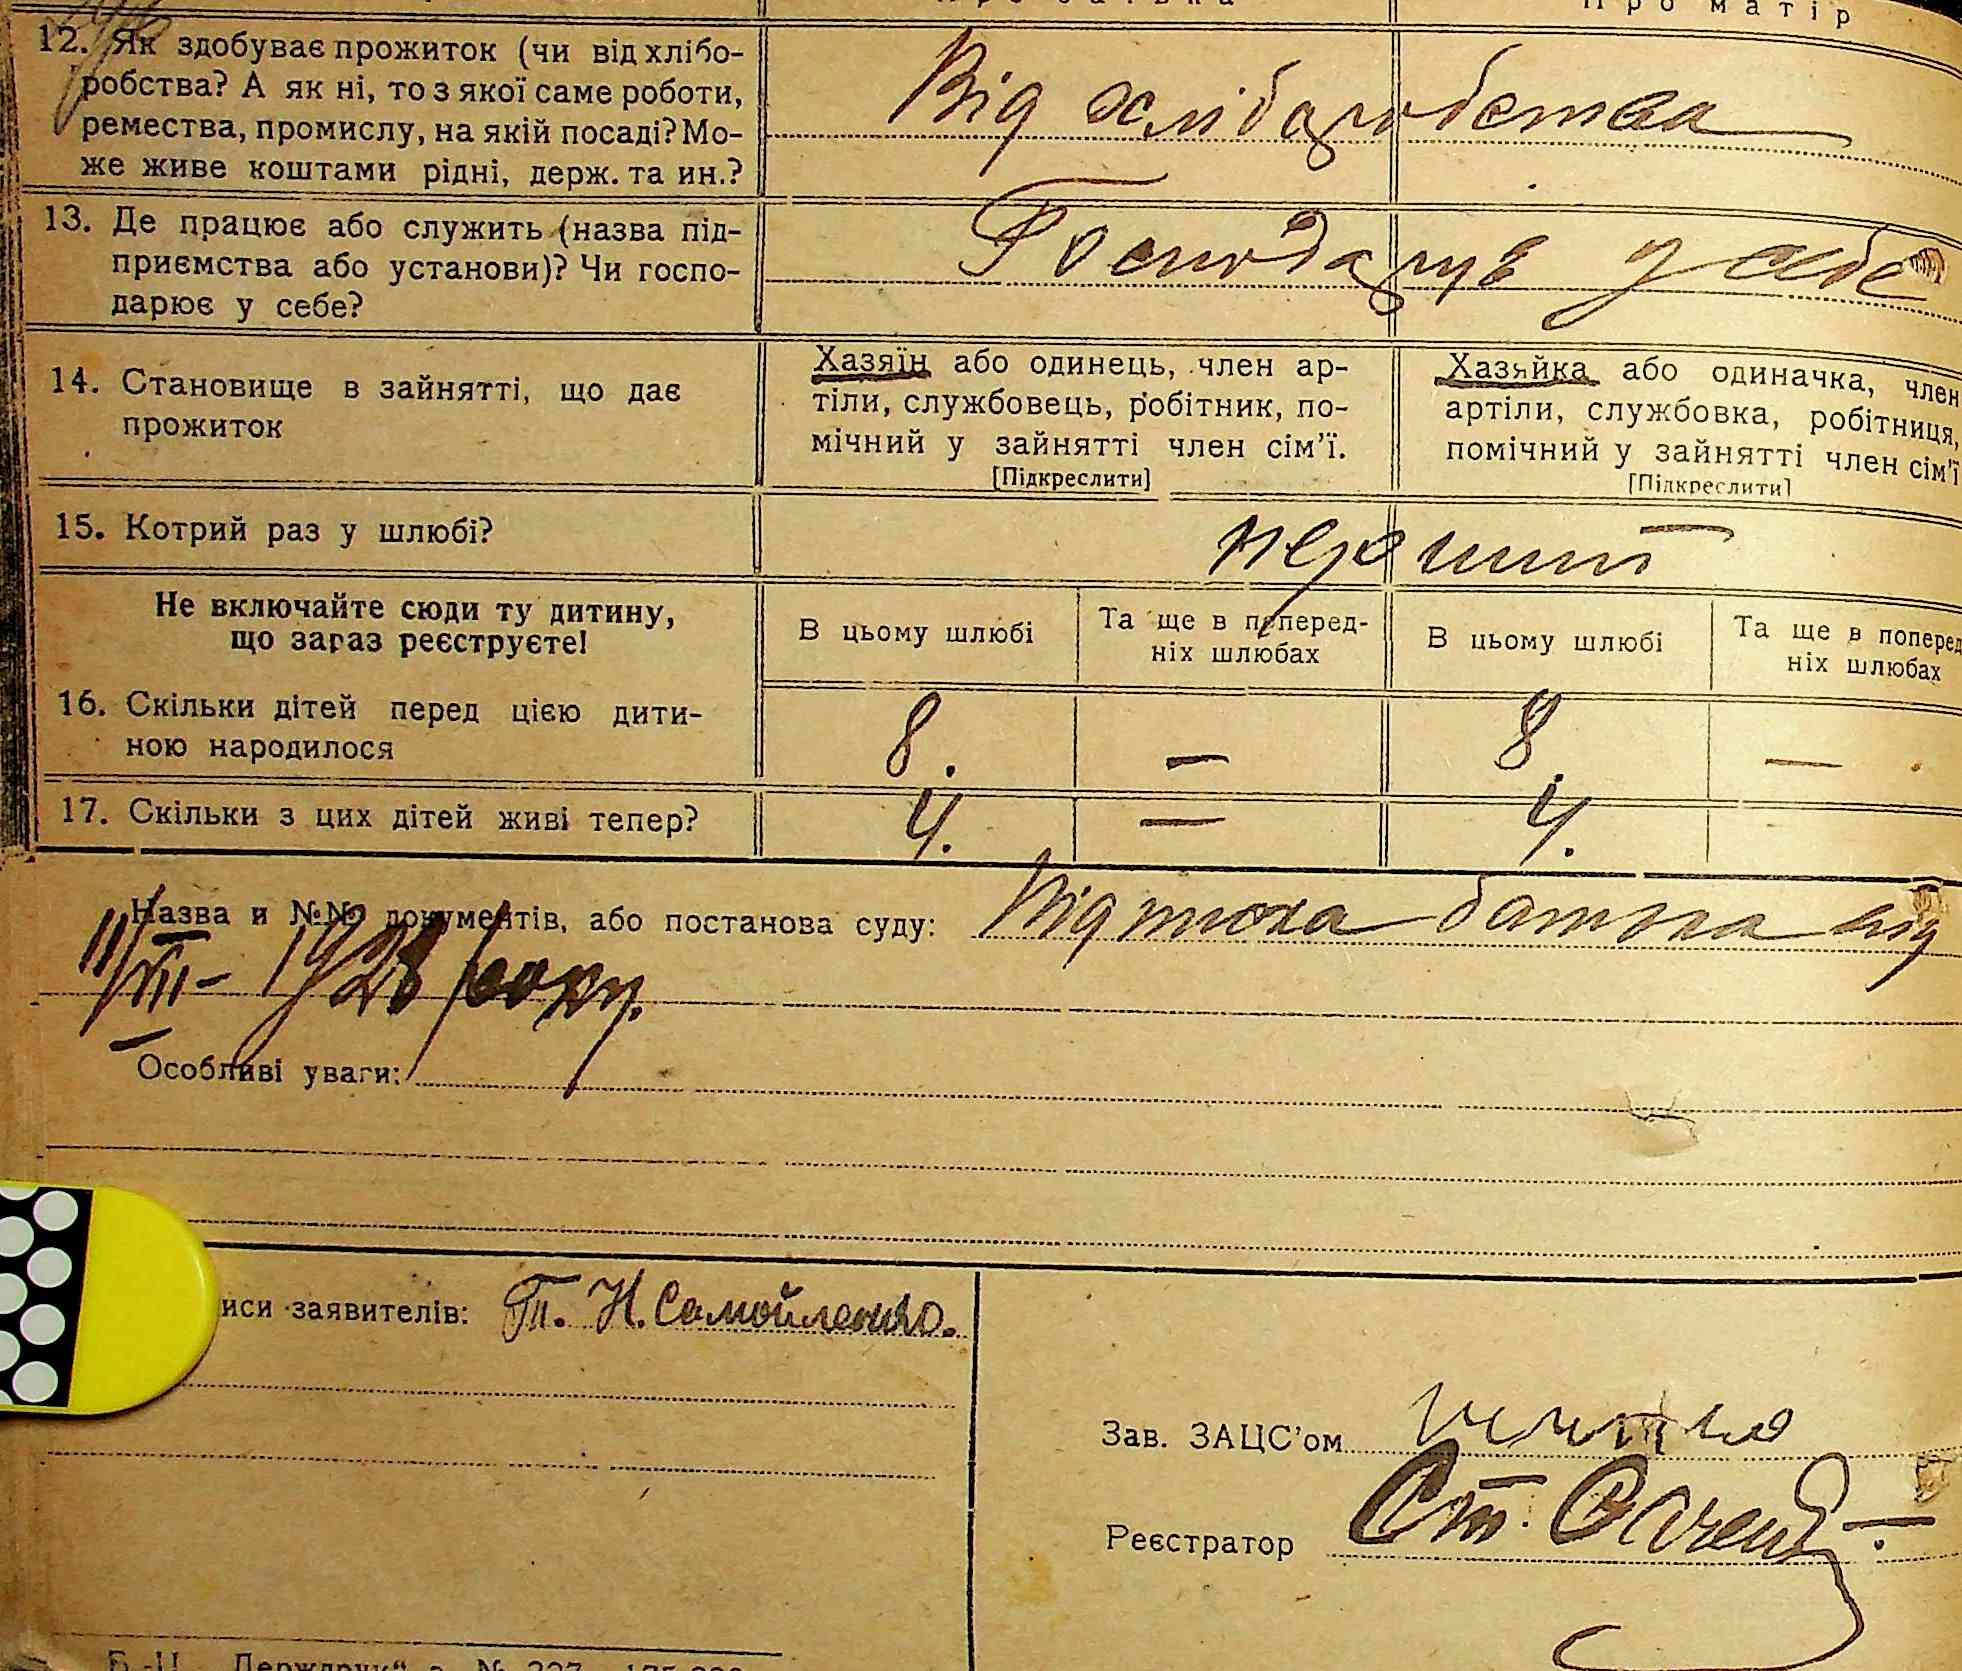 Про матір
12. Як здобуває прожиток (чи від хлібо-
робства? А як ні, то з якої саме роботи,
ремества, промислу, на якій посаді? Мо-
же живе коштами рідні, держ. та ин.?
Від хліборобства
13. Де працює або служить (назва під-
приємства або установи)? Чи госпо-
дарює у себе?
Господарує у себе
14. Становище в зайнятті, що дає
прожиток
Хазяїн або одинець, член ар-
тіли, службовець, робітник, по-
мічний у зайнятті член сім'ї.
[Підкреслити]
Хазяйка або одиначка, член
артіли, службовка, робітниця,
помічний у зайнятті член сім'ї
[Підкреслити]
15. Котрий раз у шлюбі?
перший
Не включайте сюди ту дитину,
що зараз реєструєте!
В цьому шлюбі
Та ще в поперед-
ніх шлюбах
В цьому шлюбі
Та ще в поперед
ніх шлюбах
16. Скільки дітей перед цією дити-
ною народилося
8. — 8. —
17. Скільки з цих дітей живі тепер?
4. — 4.
Назва и №№ документів, або постанова суду:
батька від
1928 року.
Особливі уваги:
иси заявителів: Т. Н. Самойленко.
Зав. ЗАЦС'ом
Реєстратор Ст.